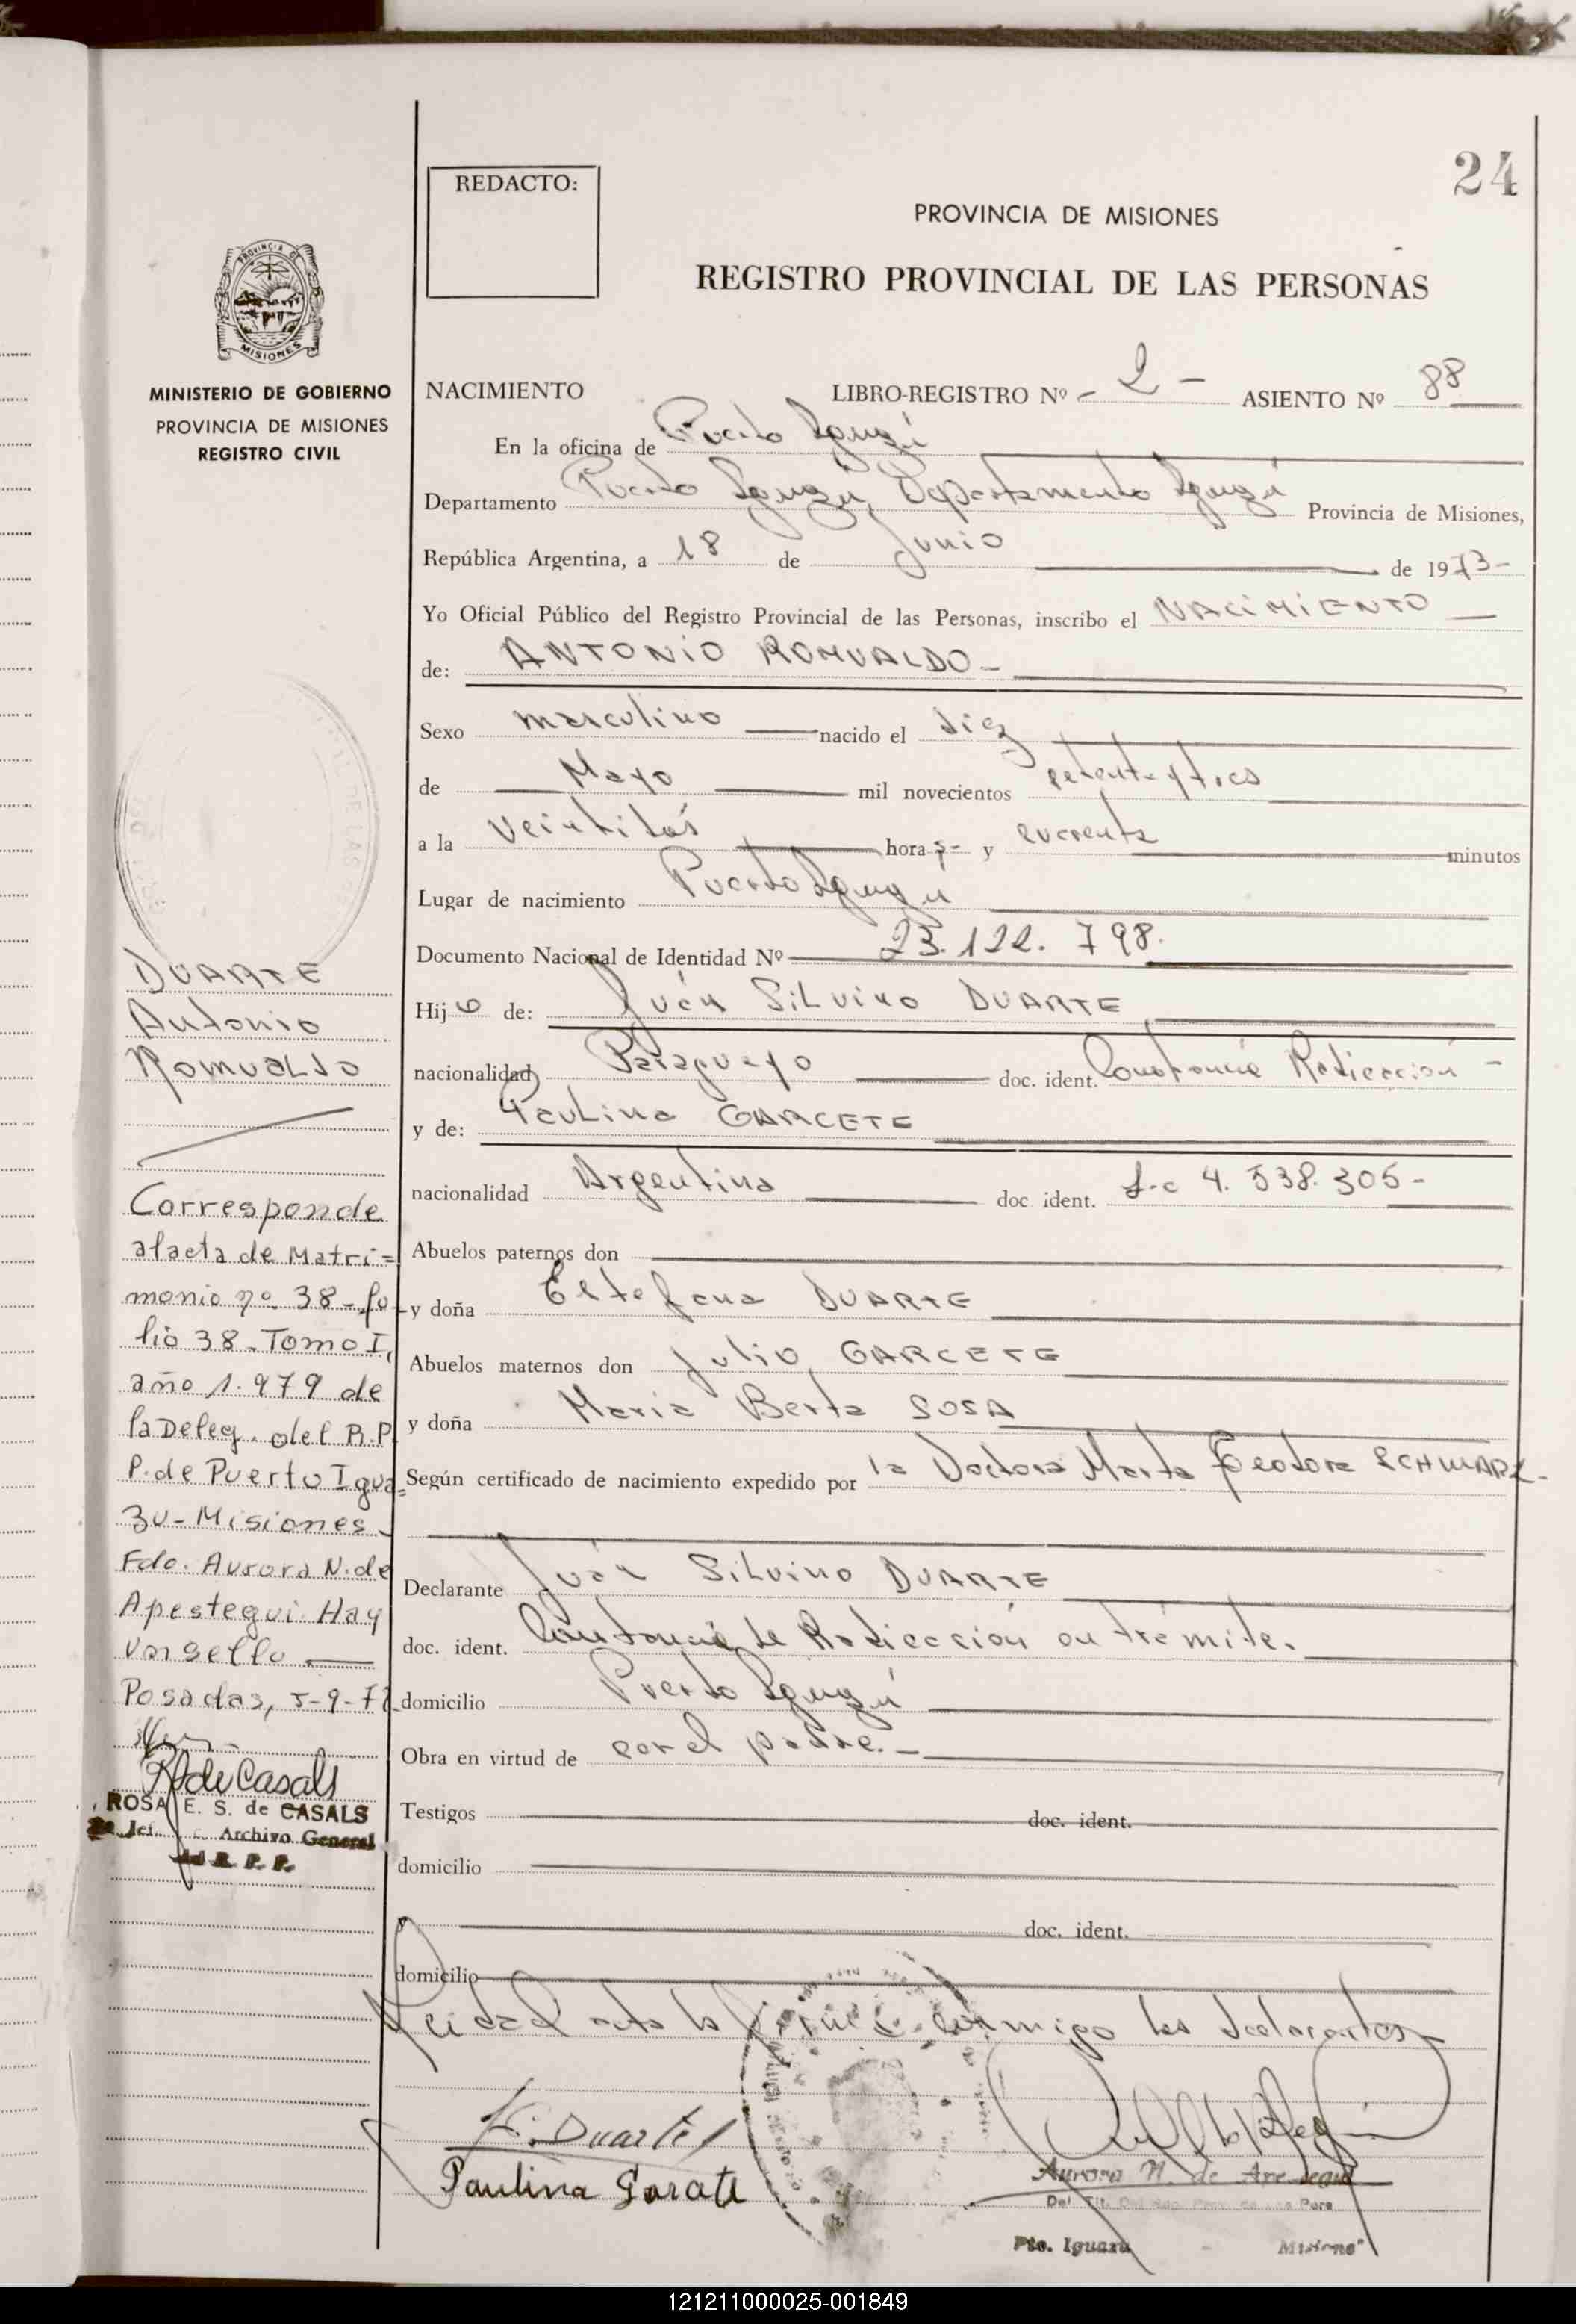 24
REDACTO:
PROVINCIA DE MISIONES
REGISTRO PROVINCIAL DE LAS PERSONAS
PROVINCIA DE
MISIONES
MINISTERIO DE GOBIERNO
PROVINCIA DE MISIONES
REGISTRO CIVIL
NACIMIENTO LIBRO-REGISTRO Nº - 2 - ASIENTO Nº 88
En la oficina de Puerto Iguazú
Departamento Puerto Iguazú, Departamento Iguazú Provincia de Misiones,
República Argentina, a 18 de Junio de 1973-
Yo Oficial Público del Registro Provincial de las Personas, inscribo el NACIMIENTO
de: ANTONIO ROMUALDO-
Sexo masculino nacido el diez
de Mayo mil novecientos setenta y tres
a la veintidós horas- y cuarenta minutos
Lugar de nacimiento Puerto Iguazú
Documento Nacional de Identidad Nº 23.122.798.
Hijo de: Juán SiLvino DUARTE
nacionalidad Paraguayo doc. ident. Constancia Radicación -
y de: PauLina GARCETE
nacionalidad Argentina doc. ident. L.c 4.538.305-
Abuelos paternos don
y doña Estefana DUARTE
Abuelos maternos don Julio GARCETE
y doña María Berta SOSA
Según certificado de nacimiento expedido por la Doctora Marta Teodora SCHWARZ-
Declarante Juán SiLvino DUARTE
doc. ident. Constancia de Radicación en trámite.
domicilio Puerto Iguazú
Obra en virtud de ser el padre.-
Testigos doc. ident.
domicilio
y doc. ident.
domicilio
Leida el acta la firman conmigo los declarantes
DUARTE
Antonio
RomuaLdo
Corresponde
al acta de Matri=
monio nº 38-fo-
lio 38-Tomo I,
año 1.979 de
la Deleg. del R.P.
P. de Puerto Igua=
zu-Misiones-
Fdo. Aurora N. de
Apestegui. Hay
un sello
Posadas, 5-9-
R de Casals
ROSA E. S. de CASALS
Archivo General
del R. P. P.
Duarte
Paulina Garcete
Aurora N. de Apestegui
Pto. Iguazú - Misiones
121211000025-001849